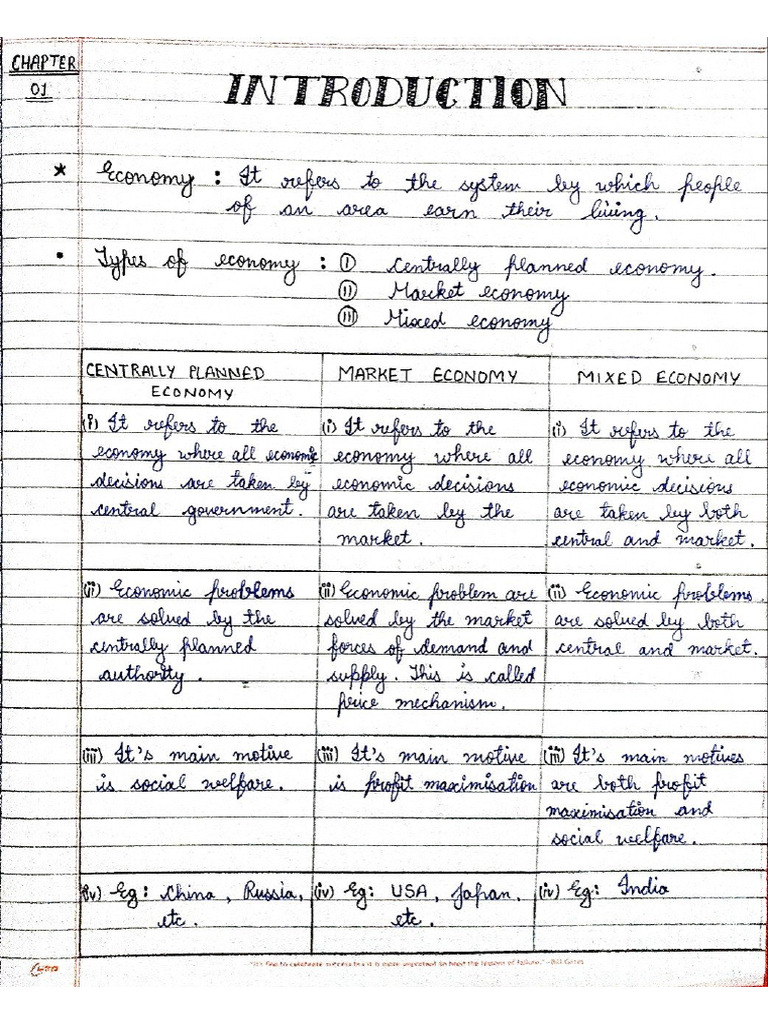 CHAPTER
01
INTRODUCTION
* Economy : It refers to the system by which people
of an area earn their living.
• Types of economy : (i) Centrally planned economy.
(ii) Market economy
(iii) Mixed economy
CENTRALLY PLANNED
ECONOMY
(i) It refers to the
economy where all economic
decisions are taken by
central government.
(ii) Economic problems
are solved by the
centrally planned
authority.
(iii) It's main motive
is social welfare.
(iv) Eg: China, Russia,
etc.
MARKET ECONOMY
(i) It refers to the
economy where all
economic decisions
are taken by the
market.
(ii) Economic problem are
solved by the market
forces of demand and
supply. This is called
price mechanism.
(iii) It's main motive
is profit maximisation
(iv) Eg: USA, Japan.
etc.
MIXED ECONOMY
(i) It refers to the
economy where all
economic decisions
are taken by both
central and market.
(ii) Economic problems.
are solved by both
central and market.
(iii) It's main motives
are both profit
maximisation and
social welfare.
(iv) Eg: India
"It's fine to celebrate success but it is more important to heed the lessons of failure." –Bill Gates